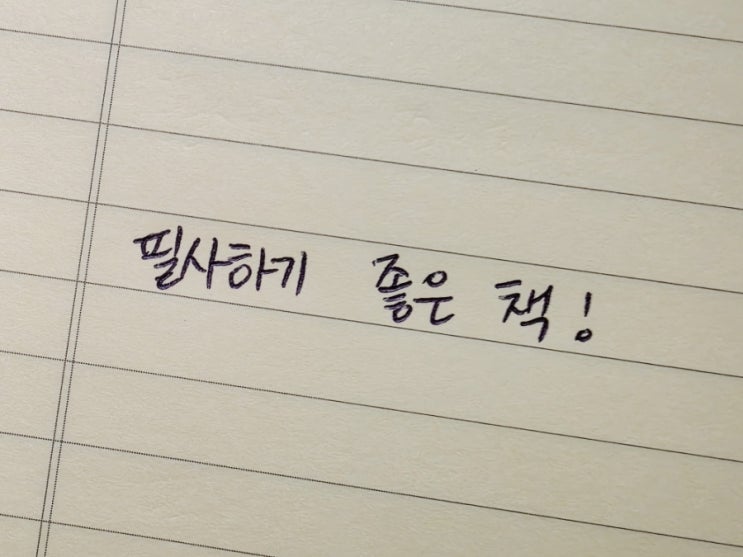 필사하기 좋은 책!